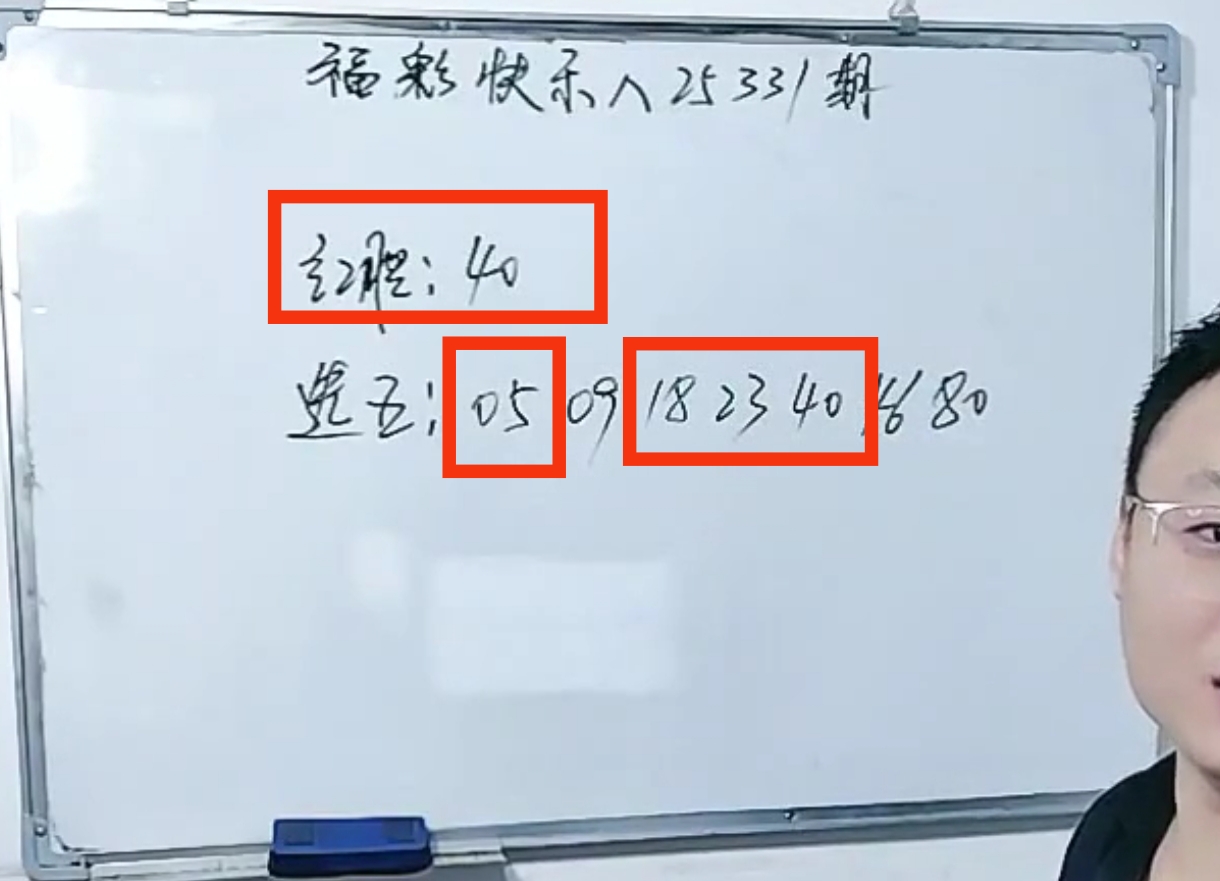 福彩快乐八25331期
红胆:40
选五:05 09 18 23 40 46 80